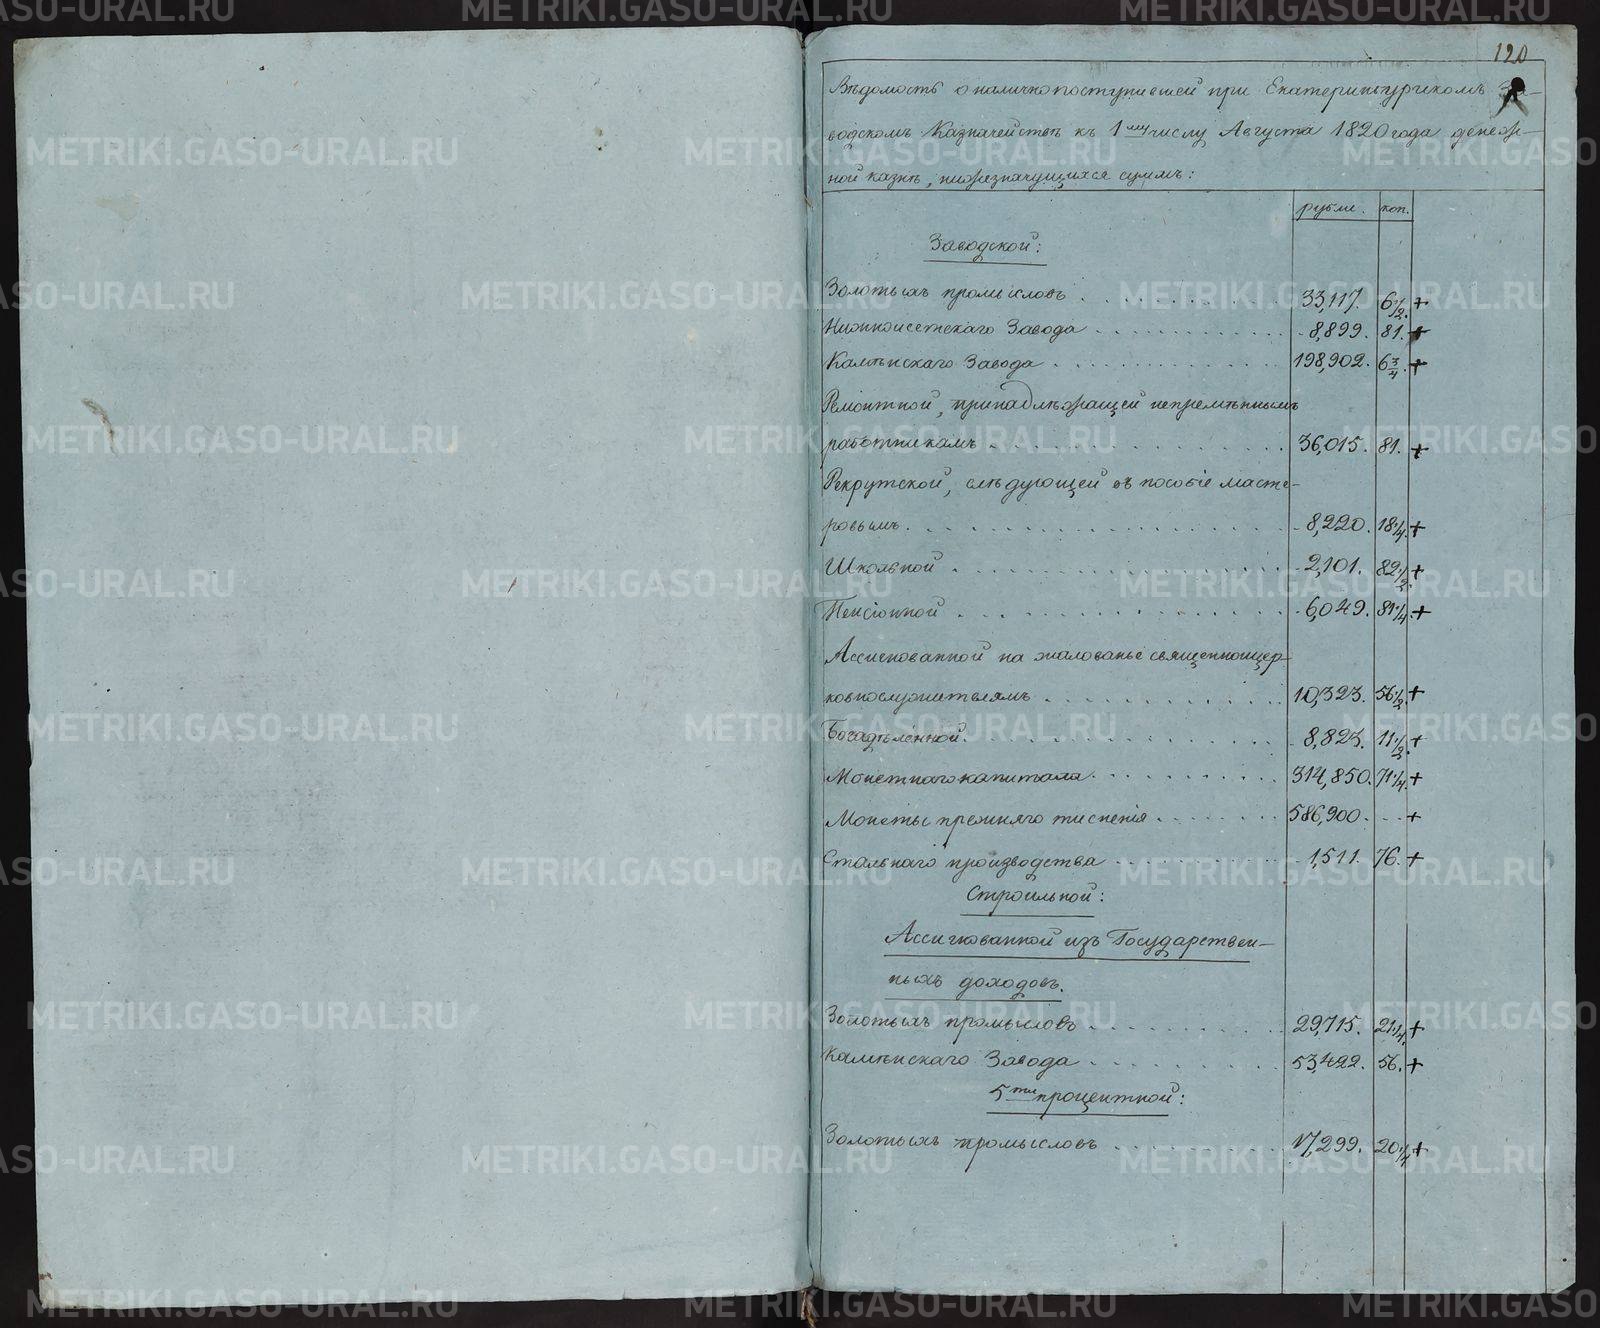 120
Вѣдомость о наличнопоступившей при Екатеринбургскомъ За-
водскомъ Казначействѣ къ 1му числу Августа 1820 года денеж-
ной казнѣ, нижезначущихся суммъ:
рубли. коп.
Заводской:
Золотыхъ промысловъ . . . 33,117. 6 1/2. +
Нижноисетскаго Завода . . . 8,899. 81. +
Камѣнскаго Завода . . . 198,902. 6 3/4. +
Ремонтной, принадлѣжащей непремѣннымъ
работникамъ . . . 36,015. 81. +
Рекрутской, слѣдующей въ пособіе масте-
ровымъ . . . 8,220. 18 1/4. +
Школьной . . . 2,101. 82 1/2. +
Пенсіонной . . . 6,049. 81 1/4. +
Ассигнованной на жалованье священноцер-
ковнослужителямъ . . . 10,323. 56 1/2. +
Богадѣленной . . . 8,823. 11 1/2. +
Монетнаго капитала . . . 314,850. 71 1/4. +
Монеты прежняго тисненія . . . 586,900. - - +
Стальнаго производства . . . 1,511. 76. +
Строильной:
Ассигнованной изъ Государствен-
ныхъ доходовъ.
Золотыхъ промысловъ . . . 29,715. 21 1/4. +
Камѣнскаго Завода . . . 53,422. 56. +
5ти процентной:
Золотыхъ промысловъ . . . 17,299. 20 1/4 +
METRIKI.GASO-URAL.RU